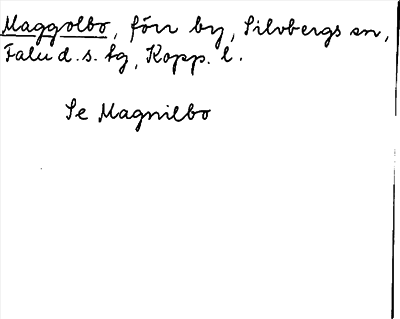 Maggolbo, förr by, Silvbergs sn,
Falu d. s. tg, Kopp. l.
Se Magnilbo